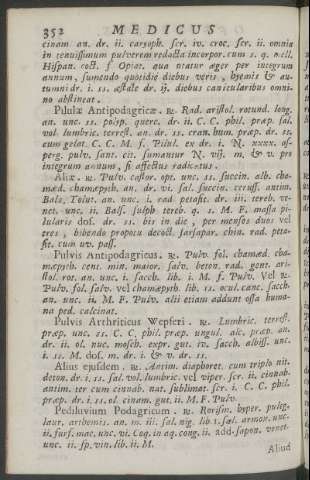 352 MEDICUS
cinam an. dr. ii. caryoph. scr. iv. croc. scr. ii. omnia
in tenuissimum pulverem redacta incorpor. cum s. q. mell.
Hispan. coct. f Opiat. qua utatur æger per integrum
annum, sumendo quotidie diebus veris, hyemis & au-
tumni dr. i. ss. æstate dr. ij. diebus canicularibus omni-
no abstineat.
Pilulæ Antipodagricæ. ℞. Rad. aristol. rotund. long.
an. unc. ss. polyp. querc. dr. ii. C. C. phil. præp. sal.
vol. lumbric. terrest. an. dr. ss. cran. hum. præp. dr. ss.
cum gelat. C. C. M. f. Pilul. ex dr. i. N. xxxx. as-
perg. pulv. sant. cit. sumantur N. vij. m. & v. pro
integrum annum, si affectus radicatus.
Aliæ. ℞. Pulv. castor. opt. unc. ss. succin. alb. cha-
mæd. chamæpyth. an. dr. vi. sal. succin. ceruss. antim.
Bals. Tolut. an. unc. i. rad. petasit. dr. iii. tereb. ve-
net. unc. ii. Bals. sulph tereb q. s. M. F. massa pi-
lularis dos. dr. ss. bis in die, per menses duos vel
tres, bibendo propotu decoct. sarsapar. chin. rad. peta-
sit. cum uv. pass.
Pulvis Antipodagricus. ℞. Pulv. fol. chamæd. cha-
mæpyth. cent. min. maior. salv. beton. rad. gent. ari-
stol. rot. an. unc. i. sacch. lib. ii. M. f. Pulv. Vel ℞.
Pulv. fol. salv. vel chamæpyth. lib. ss. ocul. canc. sacch.
an. unc. ii. M. F. Pulv. alii etiam addunt ossa huma-
na ped. calcinat.
Pulvis Arthriticus Wepferi. ℞. Lumbric. terrest.
præp. unc. ss. C. C. phil. præp. ungul. alc. præp. an.
dr. ii. ol. nuc. mosch. expr. gut. iv. sacch. albiss. unc.
i. ss. M. dos. m. dr. i. & v. dr. ss.
Alius ejusdem. ℞. Antim. diaphoret. cum triplo nit.
deton. dr. i. ss. sal. vol. lumbric. vel viper. scr. ii. cinnab.
antim. ter cum cinnab. nat. sublimat. scr. i. C. C. phil.
præp. dr. i. ss. ol. cinam. gut. ii. M. F. Pulv.
Pediluvium Podagricum. ℞. Rorism. hyper. puleg.
laur. arthemis. an. m. iii. sal. nig. lib 1. sal. armon. unc.
ii. furf. mac. unc. vi. Coq. in aq. cong. ii. add. sapon. venet.
unc. ii. sp. vin. lib. ii. M.
Aliud